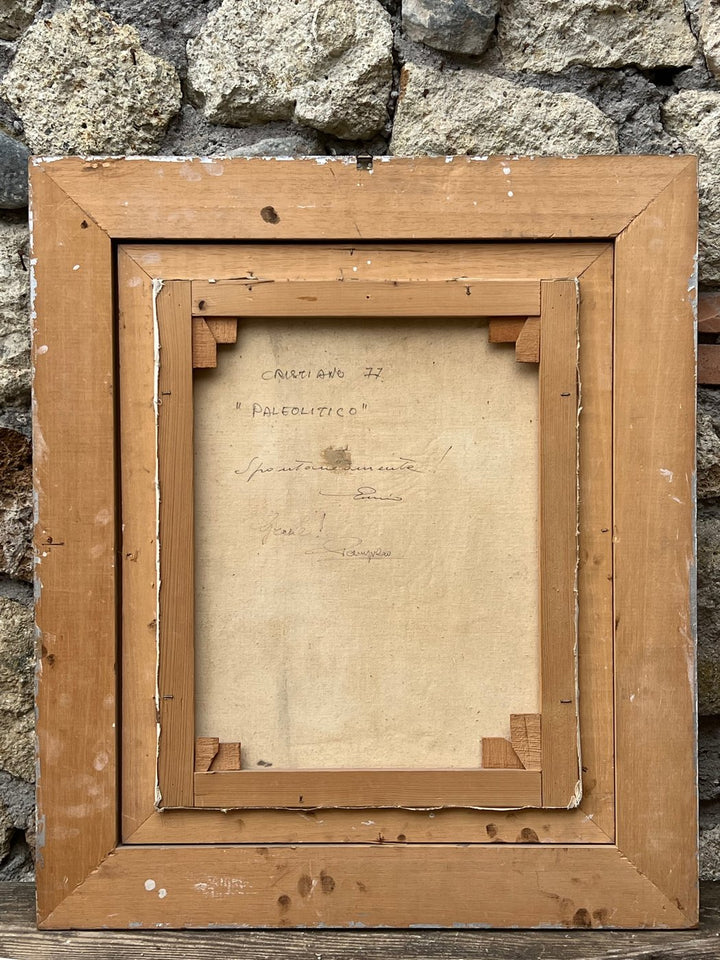 CRISTIANO 77
"PALEOLITICO"
Spontaneamente!
Ennio
Grazie!